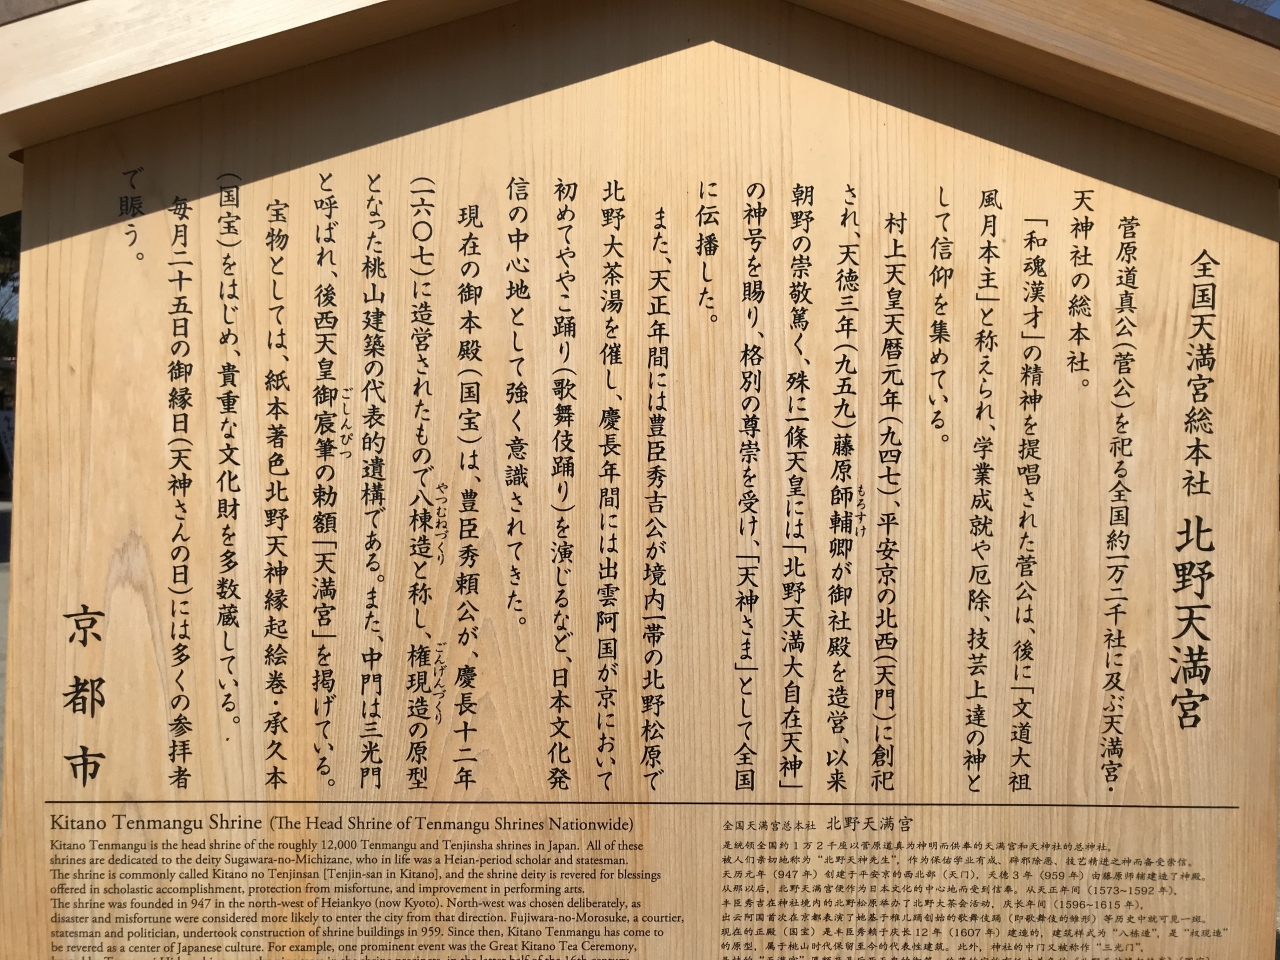 全国天満宮総本社 北野天満宮
菅原道真公(菅公)を祀る全国約一万二千社に及ぶ天満宮・
天神社の総本社。
「和魂漢才」の精神を提唱された菅公は、後に「文道大祖
風月本主」と称えられ、学業成就や厄除、技芸上達の神と
して信仰を集めている。
村上天皇天暦元年(九四七)、平安京の北西(天門)に創祀
され、天徳三年(九五九)藤原師輔卿が御社殿を造営、以来
もろすけ
朝野の崇敬篤く、殊に一條天皇には「北野天満大自在天神」
の神号を賜り、格別の尊崇を受け、「天神さま」として全国
に伝播した。
また、天正年間には豊臣秀吉公が境内一帯の北野松原で
北野大茶湯を催し、慶長年間には出雲阿国が京において
初めてややこ踊り(歌舞伎踊り)を演じるなど、日本文化発
信の中心地として強く意識されてきた。
現在の御本殿(国宝)は、豊臣秀頼公が、慶長十二年
(一六〇七)に造営されたもので八棟造と称し、権現造の原型
やつむねづくり ごんげんづくり
となった桃山建築の代表的遺構である。また、中門は三光門
と呼ばれ、後西天皇御宸筆の勅額「天満宮」を掲げている。
ごしんぴつ
宝物としては、紙本著色北野天神縁起絵巻・承久本
(国宝)をはじめ、貴重な文化財を多数蔵している。
毎月二十五日の御縁日(天神さんの日)には多くの参拝者
で賑う。
京都市
Kitano Tenmangu Shrine (The Head Shrine of Tenmangu Shrines Nationwide)
Kitano Tenmangu is the head shrine of the roughly 12,000 Tenmangu and Tenjinsha shrines in Japan. All of these
shrines are dedicated to the deity Sugawara-no-Michizane, who in life was a Heian-period scholar and statesman.
The shrine is commonly called Kitano no Tenjinsan [Tenjin-san in Kitano], and the shrine deity is revered for blessings
offered in scholastic accomplishment, protection from misfortune, and improvement in performing arts.
The shrine was founded in 947 in the north-west of Heiankyo (now Kyoto). North-west was chosen deliberately, as
disaster and misfortune were considered more likely to enter the city from that direction. Fujiwara-no-Morosuke, a courtier,
statesman and politician, undertook construction of shrine buildings in 959. Since then, Kitano Tenmangu has come to
be revered as a center of Japanese culture. For example, one prominent event was the Great Kitano Tea Ceremony,
全国天满宫总本社 北野天满宫
是统领全国约1万2千座以菅原道真为神明而供奉的天满宫和天神社的总神社。
被人们亲切地称为“北野天神先生”，作为保佑学业有成、辟邪除恶、技艺精进之神而备受崇信。
天历元年（947年）创建于平安京的西北部（天门），天德3年（959年）由藤原师辅建造了神殿。
从那以后，北野天满宫便作为日本文化的中心地而受到信奉。从天正年间（1573~1592年），
丰臣秀吉在神社境内的北野松原举办了北野大茶会活动，庆长年间（1596~1615年），
出云阿国首次在京都表演了她基于稚儿踊创始的歌舞伎踊（即歌舞伎的雏形）等历史中就可见一斑。
现在的正殿（国宝）是丰臣秀赖于庆长12年（1607年）建造的，建筑样式为“八栋造”，是“权现造”
的原型，属于桃山时代保留至今的代表性建筑。此外，神社的中门又被称作“三光门”，